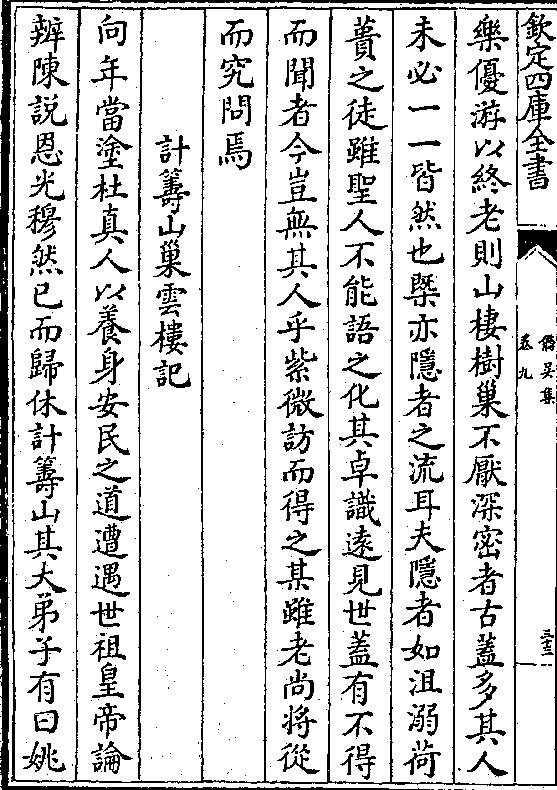 欽定四庫全書
僑吳集
卷九
三十三
樂優游以終老則山棲樹巢不厭深密者古蓋多其人
未必一一皆然也槩亦隱者之流耳夫隱者如沮溺荷
蕢之徒雖聖人不能語之化其卓識遠見世蓋有不得
而聞者今豈無其人乎紫微訪而得之某雖老尚將從
而究問焉
計籌山巢雲樓記
向年當塗杜真人以養身安民之道遭遇世祖皇帝論
辨陳説恩光穆然已而歸休計籌山其大弟子有曰姚